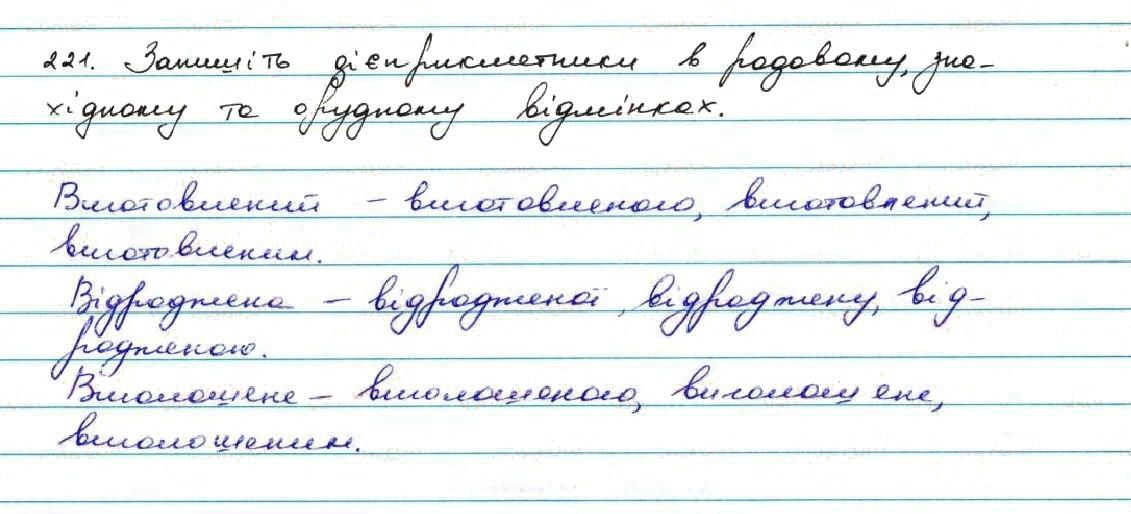 221. Запишіть дієприкметники в родовому, зна-
хідному та орудному відмінках.
Виготовлений – виготовленого, виготовлений,
виготовленим.
Відроджена – відродженої, відроджену, від-
родженою.
Виголошене – виголошеного, виголошене,
виголошеним.